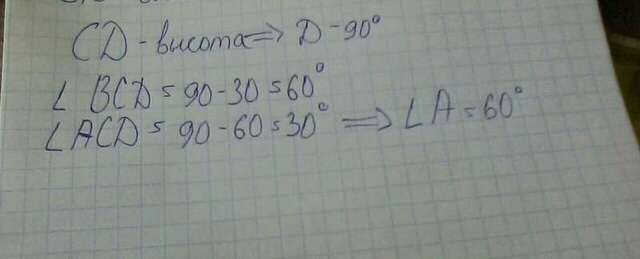 CD - высота => D - 90°
∠ BCD = 90 - 30 = 60°
∠ ACD = 90 - 60 = 30° => ∠ A = 60°